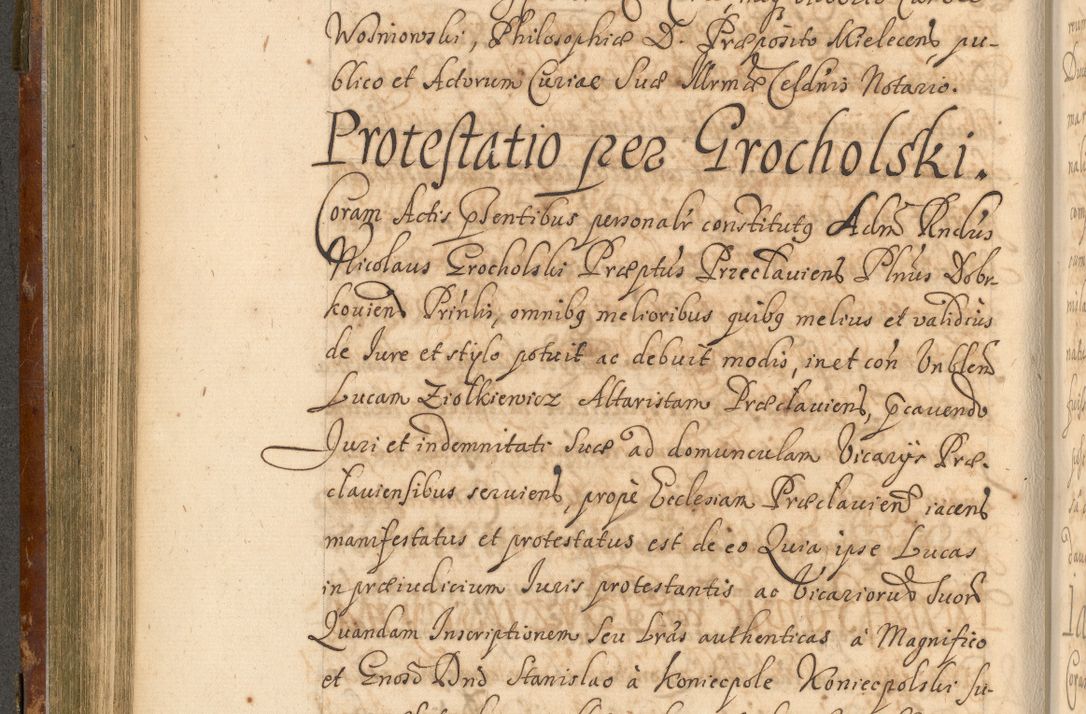 Wosniowski, Philosophiæ D. Præposito Mielecens pu-
blico et Actorum Curiae Suæ Illrmæ Celsdnis Notario.
Protestatio per Grocholski.
Coram Actis psentibus personalr constitutq Adm Rndus
Nicolaus Grocholski Præptus Przeclauiens Plnus Dobr-
kouiens Prinlis, omnibq melioribus quibq melius et validius
de Iure et stylo potuit ac debuit modis, in et con Vnblem
Lucam Ziolkiewicz Altaristam Præclauiens, pcauendo
Iuri et indemnitati suæ ad domunculam Vicarijs Præ-
clauiensibus seruiens, propè Ecclesiam Præclauiens iacens
manifestatus et protestatus est de eo Quia ipse Lucas
in præiudicium Iuris protestantis ac Vicariorum suor
Quandam Inscriptionem seu Lras authenticas à Magnifico
et Gnoso Dno Stanislao à Koniecpole Koniecpolski su-